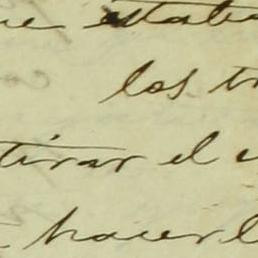 ue estaba
los tr
tirar el
hacerl